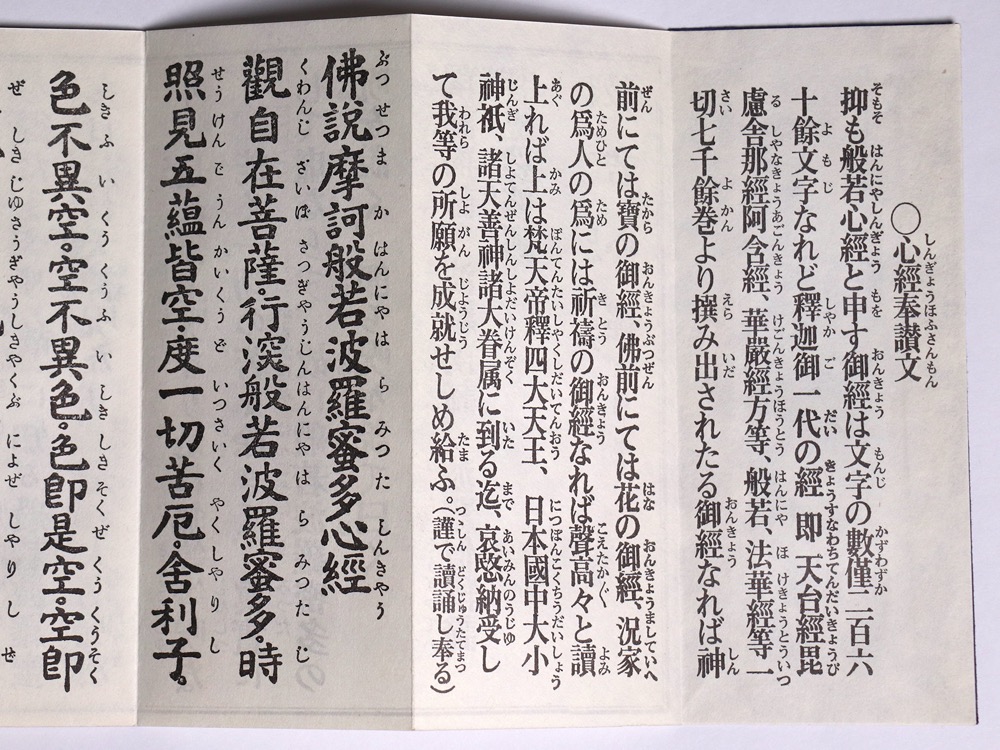 〇心經奉讃文
抑も般若心經と申す御經は文字の數僅二百六
十餘文字なれど釋迦御一代の經 即 天台經毘
盧舎那經阿含經、華嚴經方等、般若、法華經等一
切七千餘巻より撰み出されたる御經なれば神
前にては寶の御經、佛前にては花の御經、況家
の爲人の爲には祈禱の御經なれば聲高々と讀
上れば上は梵天帝釋四大天王、日本國中大小
神祇、諸天善神諸大眷属に到る迄、哀愍納受し
て我等の所願を成就せしめ給ふ。(謹で讀誦し奉る)
佛説摩訶般若波羅蜜多心經
觀自在菩薩。行深般若波羅蜜多。時
照見五蘊皆空。度一切苦厄。舍利子。
色不異空。空不異色。色即是空。空即